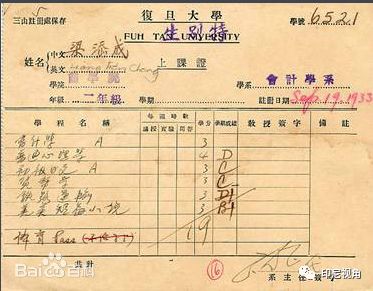 三山註冊處保存
復旦大學
學號 6521
FUH TAN UNIVERSITY
生別特
姓名 中文 梁添成
英文 Liang Tien Cheng
上課證
學院
學系 會計學系
年級 二年級 學期 註冊日期 Sep. 19, 1933
學程名稱 每週時數 學分 學期成績 教授簽字 備註
講授 實驗 問答
會計學 A 3
4 D
初級日文 A 3 C
貨幣學 3 C
鐵路運輸 3 D1
英美短篇小說 3 B1
體育 Pass
19
共計
16
系主任簽字
Bai 百科
印尼视角